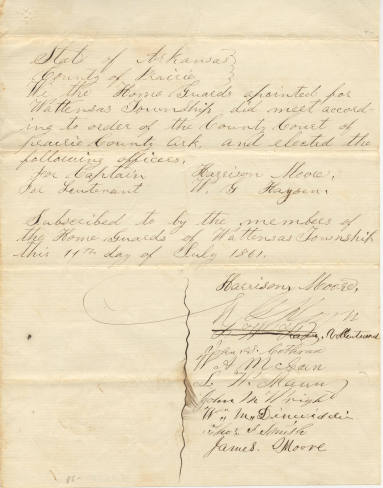 State of Arkansas
County of Prairie
We the Home Guards apointed for
Wattensas Township did meet accord-
ing to order of the County Court of
prairie County Ark, and elected the
following officers,
for Captain Harrison Moore,
for Lieutenant W. G
Subscribed to by the members of
the Home Guards of Wattensas Township
this 11th day of July 1861.
Harrison Moore,
James Calhoun
W A McGan
L. W. Munn
John M Wright
Wm M Dinwiddie
Thos J Smith
James Moore